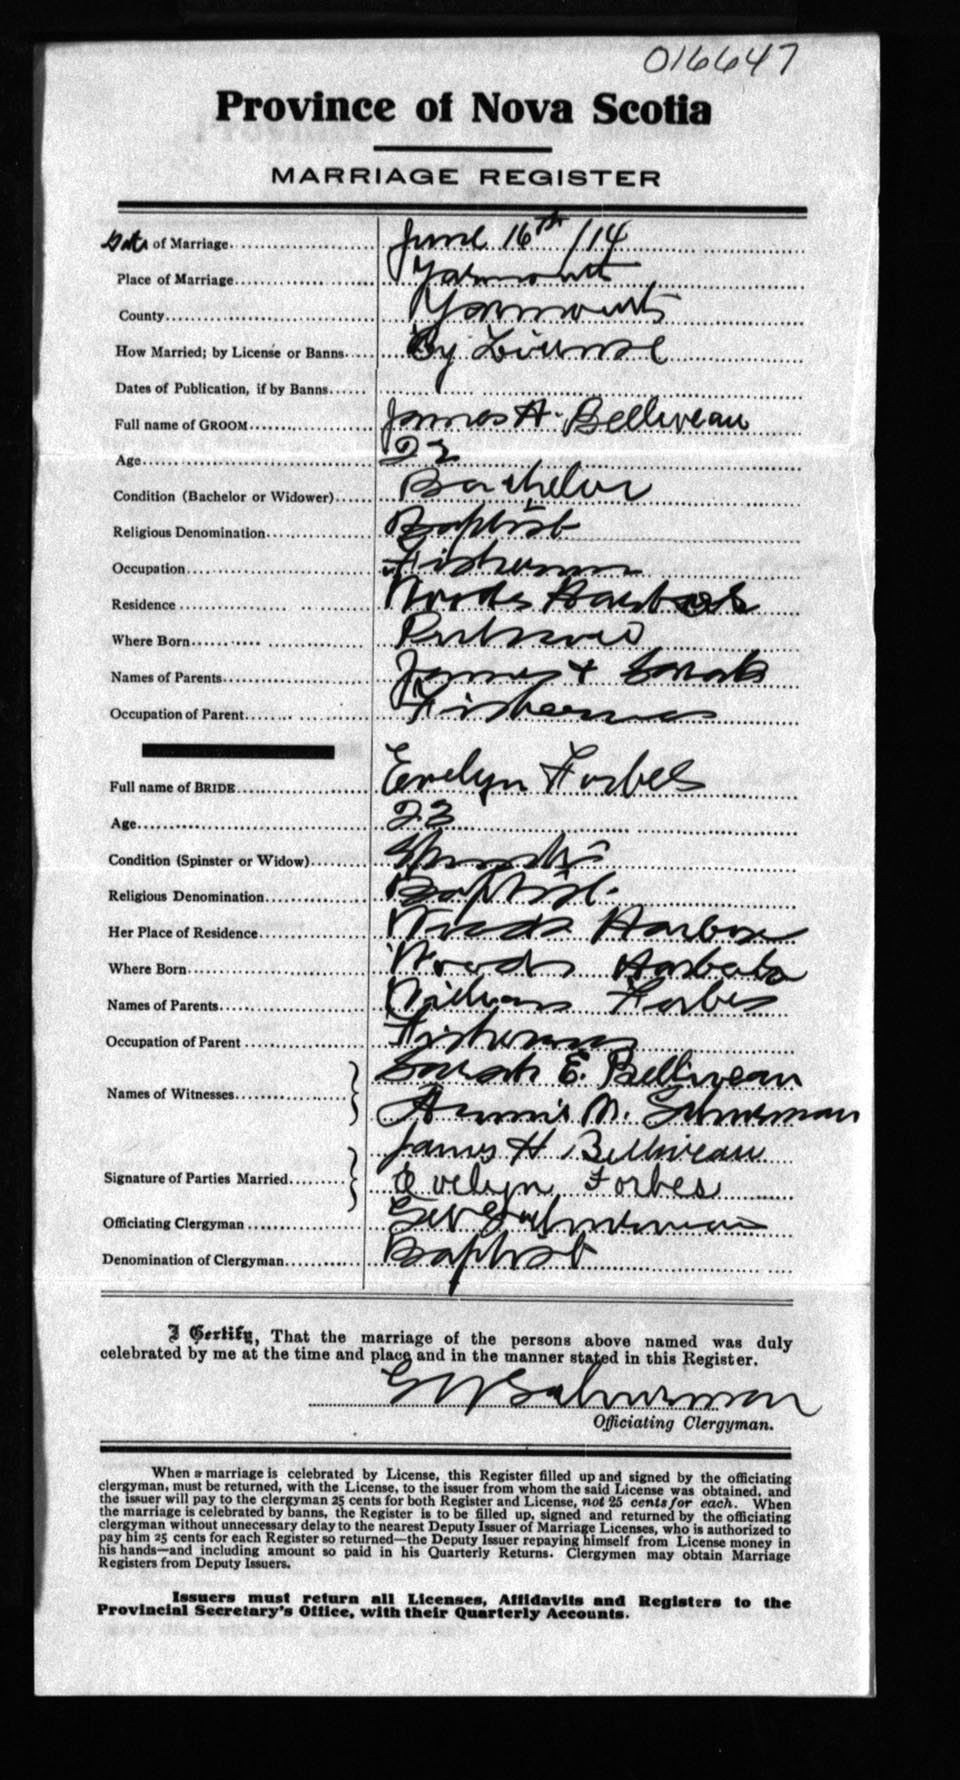 016647
Province of Nova Scotia
MARRIAGE REGISTER
Date of Marriage June 16th /14
Place of Marriage Yarmouth
County Yarmouth
How Married; by License or Banns By License
Dates of Publication, if by Banns
Full name of GROOM James H. Belliveau
Age 22
Condition (Bachelor or Widower) Bachelor
Religious Denomination Baptist
Occupation Fisherman
Residence Woods Harbor
Where Born Pubnico
Names of Parents James & Sarah
Occupation of Parent Fisherman
Full name of BRIDE Evelyn Forbes
Age 23
Condition (Spinster or Widow) Spinster
Religious Denomination Baptist
Her Place of Residence Woods Harbor
Where Born Woods Harbor
Names of Parents William Forbes
Occupation of Parent Fisherman
Names of Witnesses Sarah E. Belliveau
Annie M. Schurman
James H Belliveau
Signature of Parties Married Evelyn Forbes
Officiating Clergyman Schurman
Denomination of Clergyman Baptist
I Certify, That the marriage of the persons above named was duly
celebrated by me at the time and place and in the manner stated in this Register.
Schurman
Officiating Clergyman.
When a marriage is celebrated by License, this Register filled up and signed by the officiating
clergyman, must be returned, with the License, to the issuer from whom the said License was obtained, and
the issuer will pay to the clergyman 25 cents for both Register and License, not 25 cents for each. When
the marriage is celebrated by banns, the Register is to be filled up, signed and returned by the officiating
clergyman without unnecessary delay to the nearest Deputy Issuer of Marriage Licenses, who is authorized to
pay him 25 cents for each Register so returned—the Deputy Issuer repaying himself from License money in
his hands—and including amount so paid in his Quarterly Returns. Clergymen may obtain Marriage
Registers from Deputy Issuers.
Issuers must return all Licenses, Affidavits and Registers to the
Provincial Secretary's Office, with their Quarterly Accounts.